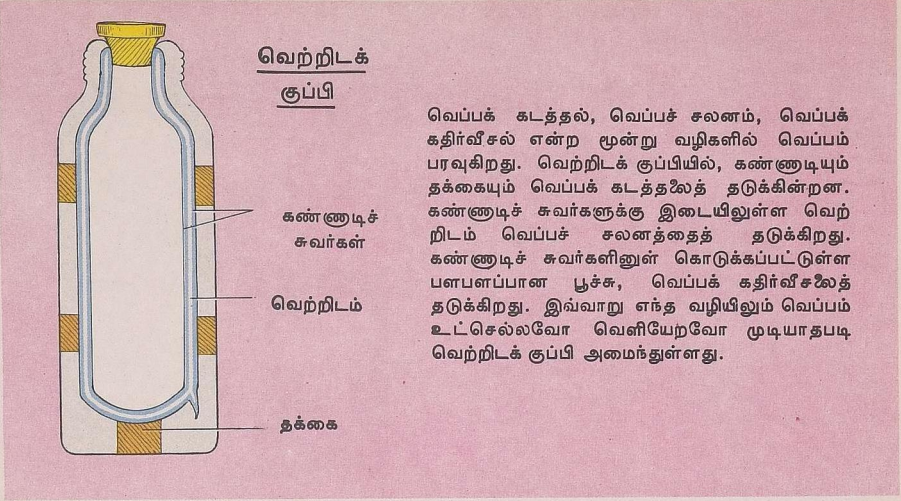 வெற்றிடக்
குப்பி
வெப்பக் கடத்தல், வெப்பச் சலனம், வெப்பக்
கதிர்வீசல் என்ற மூன்று வழிகளில் வெப்பம்
பரவுகிறது. வெற்றிடக் குப்பியில், கண்ணாடியும்
தக்கையும் வெப்பக் கடத்தலைத் தடுக்கின்றன.
கண்ணாடிச் சுவர்களுக்கு இடையிலுள்ள வெற்
றிடம் வெப்பச் சலனத்தைத் தடுக்கிறது.
கண்ணாடிச் சுவர்களினுள் கொடுக்கப்பட்டுள்ள
பளபளப்பான பூச்சு, வெப்பக் கதிர்வீசலைத்
தடுக்கிறது. இவ்வாறு எந்த வழியிலும் வெப்பம்
உட்செல்லவோ வெளியேறவோ முடியாதபடி
வெற்றிடக் குப்பி அமைந்துள்ளது.
கண்ணாடிச்
சுவர்கள்
வெற்றிடம்
தக்கை